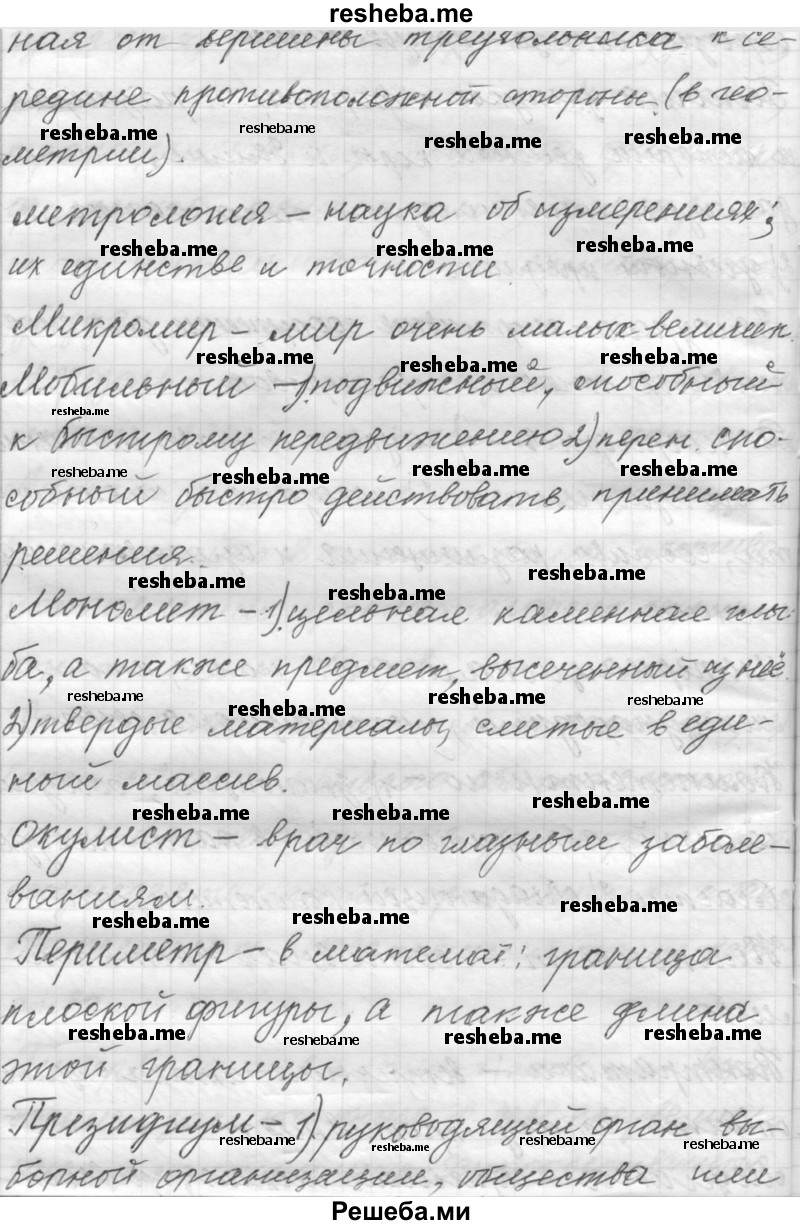 resheba.me
ная от вершены треугольника к се-
редине противоположной стороны (в гео-
resheba.me resheba.me resheba.me resheba.me
метрии).
метрология – наука об измерениях,
resheba.me resheba.me resheba.me
их единстве и точности
Микромир – мир очень малых величин.
resheba.me resheba.me resheba.me
Мобильный – 1) подвижный, способный
resheba.me
к быстрому передвижению 2) перен. спо-
resheba.me resheba.me resheba.me resheba.me
собный быстро действовать, принимать
решения.
resheba.me resheba.me resheba.me
Монолит – 1) цельная каменная глы-
ба, а также предмет, высеченный из неё
resheba.me resheba.me resheba.me resheba.me
2) твердые материалы, слитые в еди-
ный массив.
resheba.me resheba.me resheba.me
Окулист – врач по глазным заболе-
ваниям.
resheba.me resheba.me resheba.me
Периметр – в математ: граница
плоской фигуры, а также длина
resheba.me resheba.me resheba.me resheba.me
этой границы.
Президиум – 1) руководящий орган вы-
resheba.me resheba.me resheba.me resheba.me
борной организации, общества или
Решеба.ми